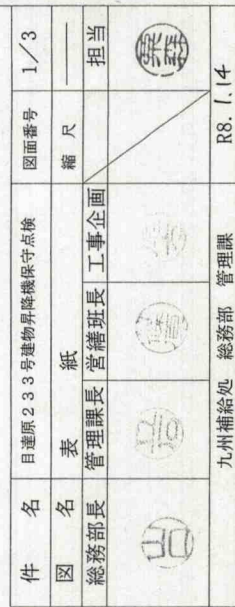 件 名 目達原233号建物昇降機保守点検 図面番号 1/3
図 名 表 紙 縮 尺 ――
総務部長 管理課長 営繕班長 工事企画 担当
九州補給処 総務部 管理課 R8.1.14